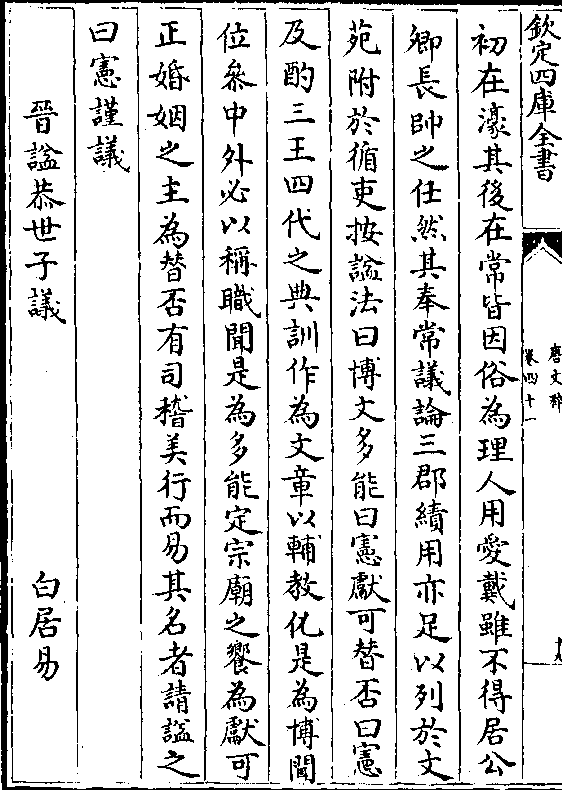 欽定四庫全書
唐文粹
卷四十一
初在濠其後在常皆因俗為理人用愛戴雖不得居公
卿長帥之任然其奉常議論三郡績用亦足以列於文
苑附於循吏按諡法曰博文多能曰憲獻可替否曰憲
及酌三王四代之典訓作為文章以輔教化是為博聞
位叅中外必以稱職聞是為多能定宗廟之饗為獻可
正婚姻之主為替否有司稽美行而易其名者請諡之
曰憲謹議
晉諡恭世子議 白居易